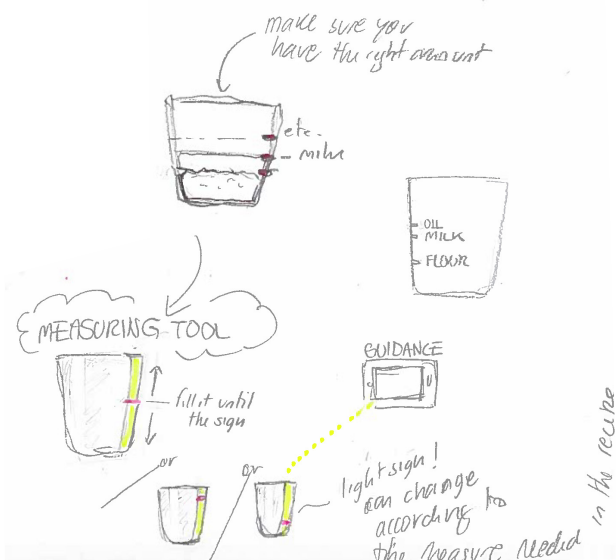 make sure you
have the right amount
etc.
milk
OIL
MILK
FLOUR
MEASURING TOOL
fill it until
the sign
GUIDANCE
or
or
light sign!
can change
according to
the measure needed
in the recipe